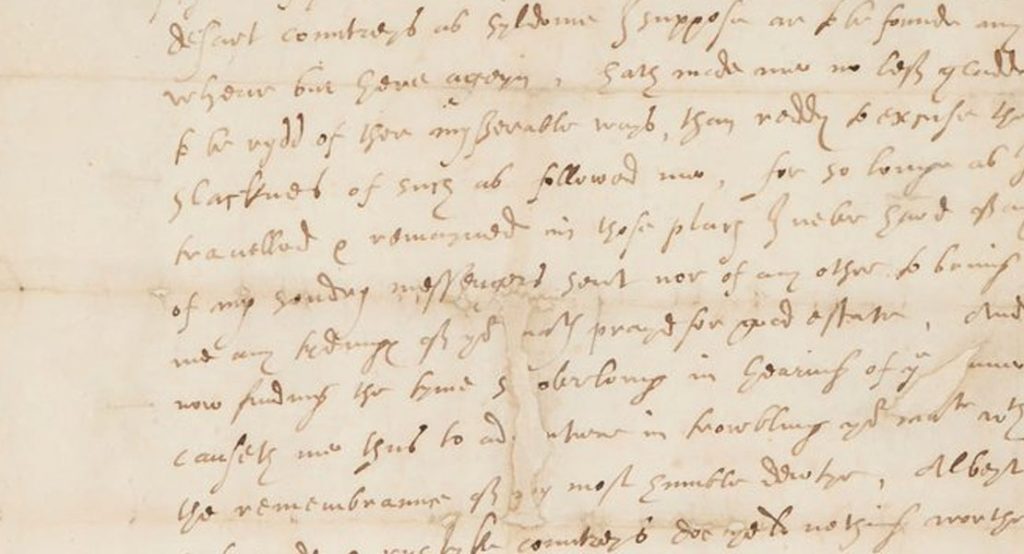 desart countreys as syldome I suppose ar to be founde any
wheare but heere ageyn, hath made me no less gladde
to be rydd of ther myserable ways, than reddy to excuse the
slacknes of such as followed me, for so longe as I
travelled & remayned in those plac I never hard of any
of my sondry messengers sent nor of any other to bring
me any of yor prayed for good estate, And
now finding the tyme overlong in hearing of yor
causeth me thus to in trowbling yor wth
the remembrance of my most humble dewtye, Albeyt
countreys nothing worthe